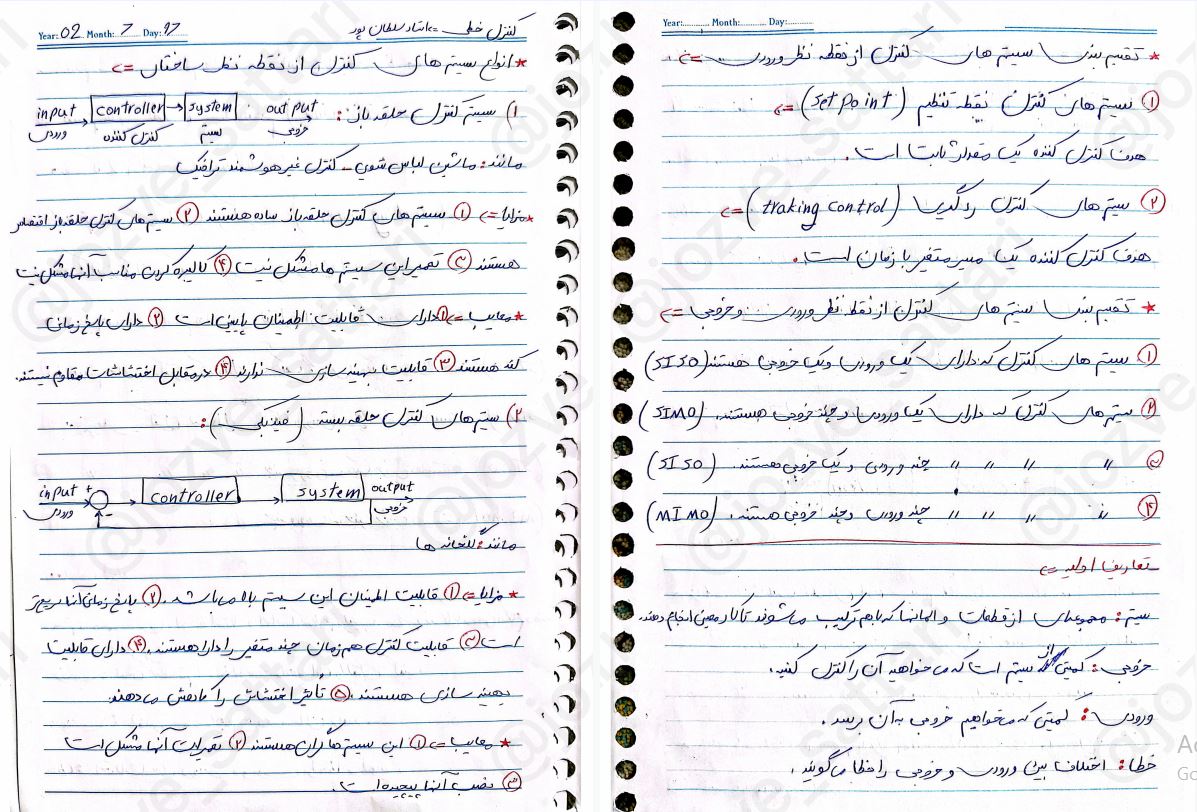 Year: 02 Month: 7 Day: 97
کنترل خطی => استاد سلطان پور
* انواع سیستم های کنترل از نقطه نظر ساختار =>
۱) سیستم کنترل حلقه باز:
input controller system output
ورودی کنترل کننده سیستم خروجی
مانند: ماشین لباس شویی - کنترل غیر هوشمند ترافیک
* مزایا => ① سیستم های کنترل حلقه باز ساده هستند ② سیستم های کنترل حلقه باز اقتصادی
هستند ③ تعمیر این سیستم ها مشکل نیست ④ کالیبره کردن مناسب آنها مشکل نیست
* معایب => ① دارای قابلیت اطمینان پایین است ② دارای پاسخ زمانی
کند هستند ③ قابلیت بهینه سازی ندارند ④ در مقابل اختشاشات مقاوم نیستند.
۲) سیستم های کنترل حلقه بسته (فیدبکی):
input + - controller system output
ورودی خروجی
مانند: گلخانه ها
* مزایا => ① قابلیت اطمینان این سیستم بالا می باشد. ② پاسخ زمانی آنها سریع تر
است ③ قابلیت کنترل هم زمان چند متغیر را دارا هستند. ④ دارای قابلیت
بهینه سازی هستند. ⑤ تأثیر اختشاش را کاهش می دهند.
* معایب => ① این سیستم ها گران هستند ② تعمیرات آنها مشکل است
③ نصب آنها پیچیده است.
Year: Month: Day:
* تقسیم بندی سیستم های کنترل از نقطه نظر ورودی =>
① سیستم های کنترل نقطه تنظیم (set point) =>
هدف کنترل کننده یک مقدار ثابت است.
② سیستم های کنترل ردگیری (traking control) =>
هدف کنترل کننده یک مسیر متغیر با زمان است.
* تقسیم بندی سیستم های کنترل از نقطه نظر ورودی و خروجی =>
① سیستم های کنترل که دارای یک ورودی و یک خروجی هستند (SISO)
② سیستم های کنترل که دارای یک ورودی و چند خروجی هستند. (SIMO)
③ " " " " چند ورودی و یک خروجی هستند. (SISO)
④ " " " " چند ورودی و چند خروجی هستند. (MIMO)
تعاریف اولیه =>
سیستم: مجموعه ای از قطعات و المانها که باهم ترکیب می شوند تا کار معینی انجام دهند.
خروجی: کمیتی از سیستم است که می خواهد آن را کنترل کنید.
ورودی: کمیتی که می خواهیم خروجی به آن برسد.
خطا: اختلاف بین ورودی و خروجی را خطا می گویند.
@jozve_sattari